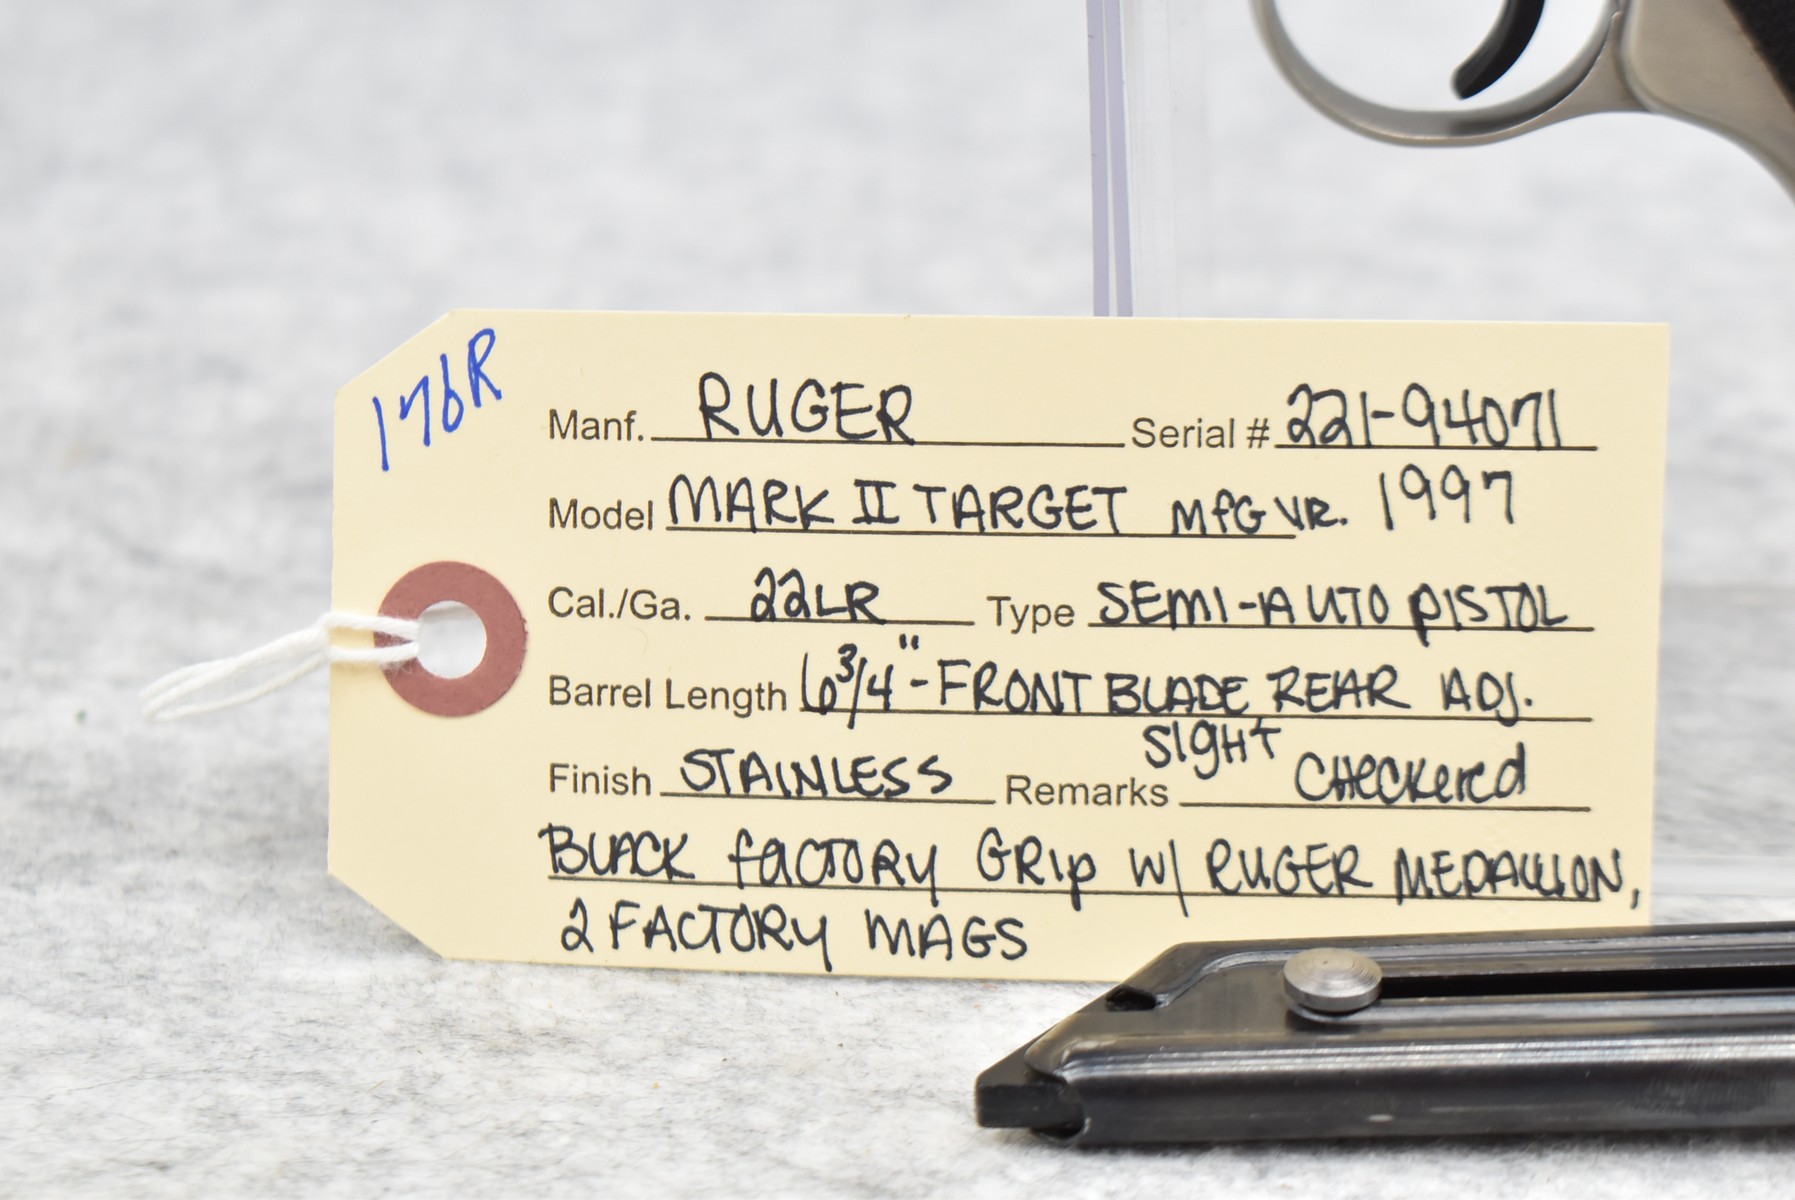 176R
Manf. RUGER Serial # 221-94071
Model MARK II TARGET MFG YR. 1997
Cal./Ga. 22LR Type SEMI-AUTO PISTOL
Barrel Length 6 3/4" - FRONT BLADE REAR ADJ.
SIGHT
Finish STAINLESS Remarks CHECKered
BLACK fACTORY GRIp W/ RUGER MEDALLION,
2 FACTORY MAGS